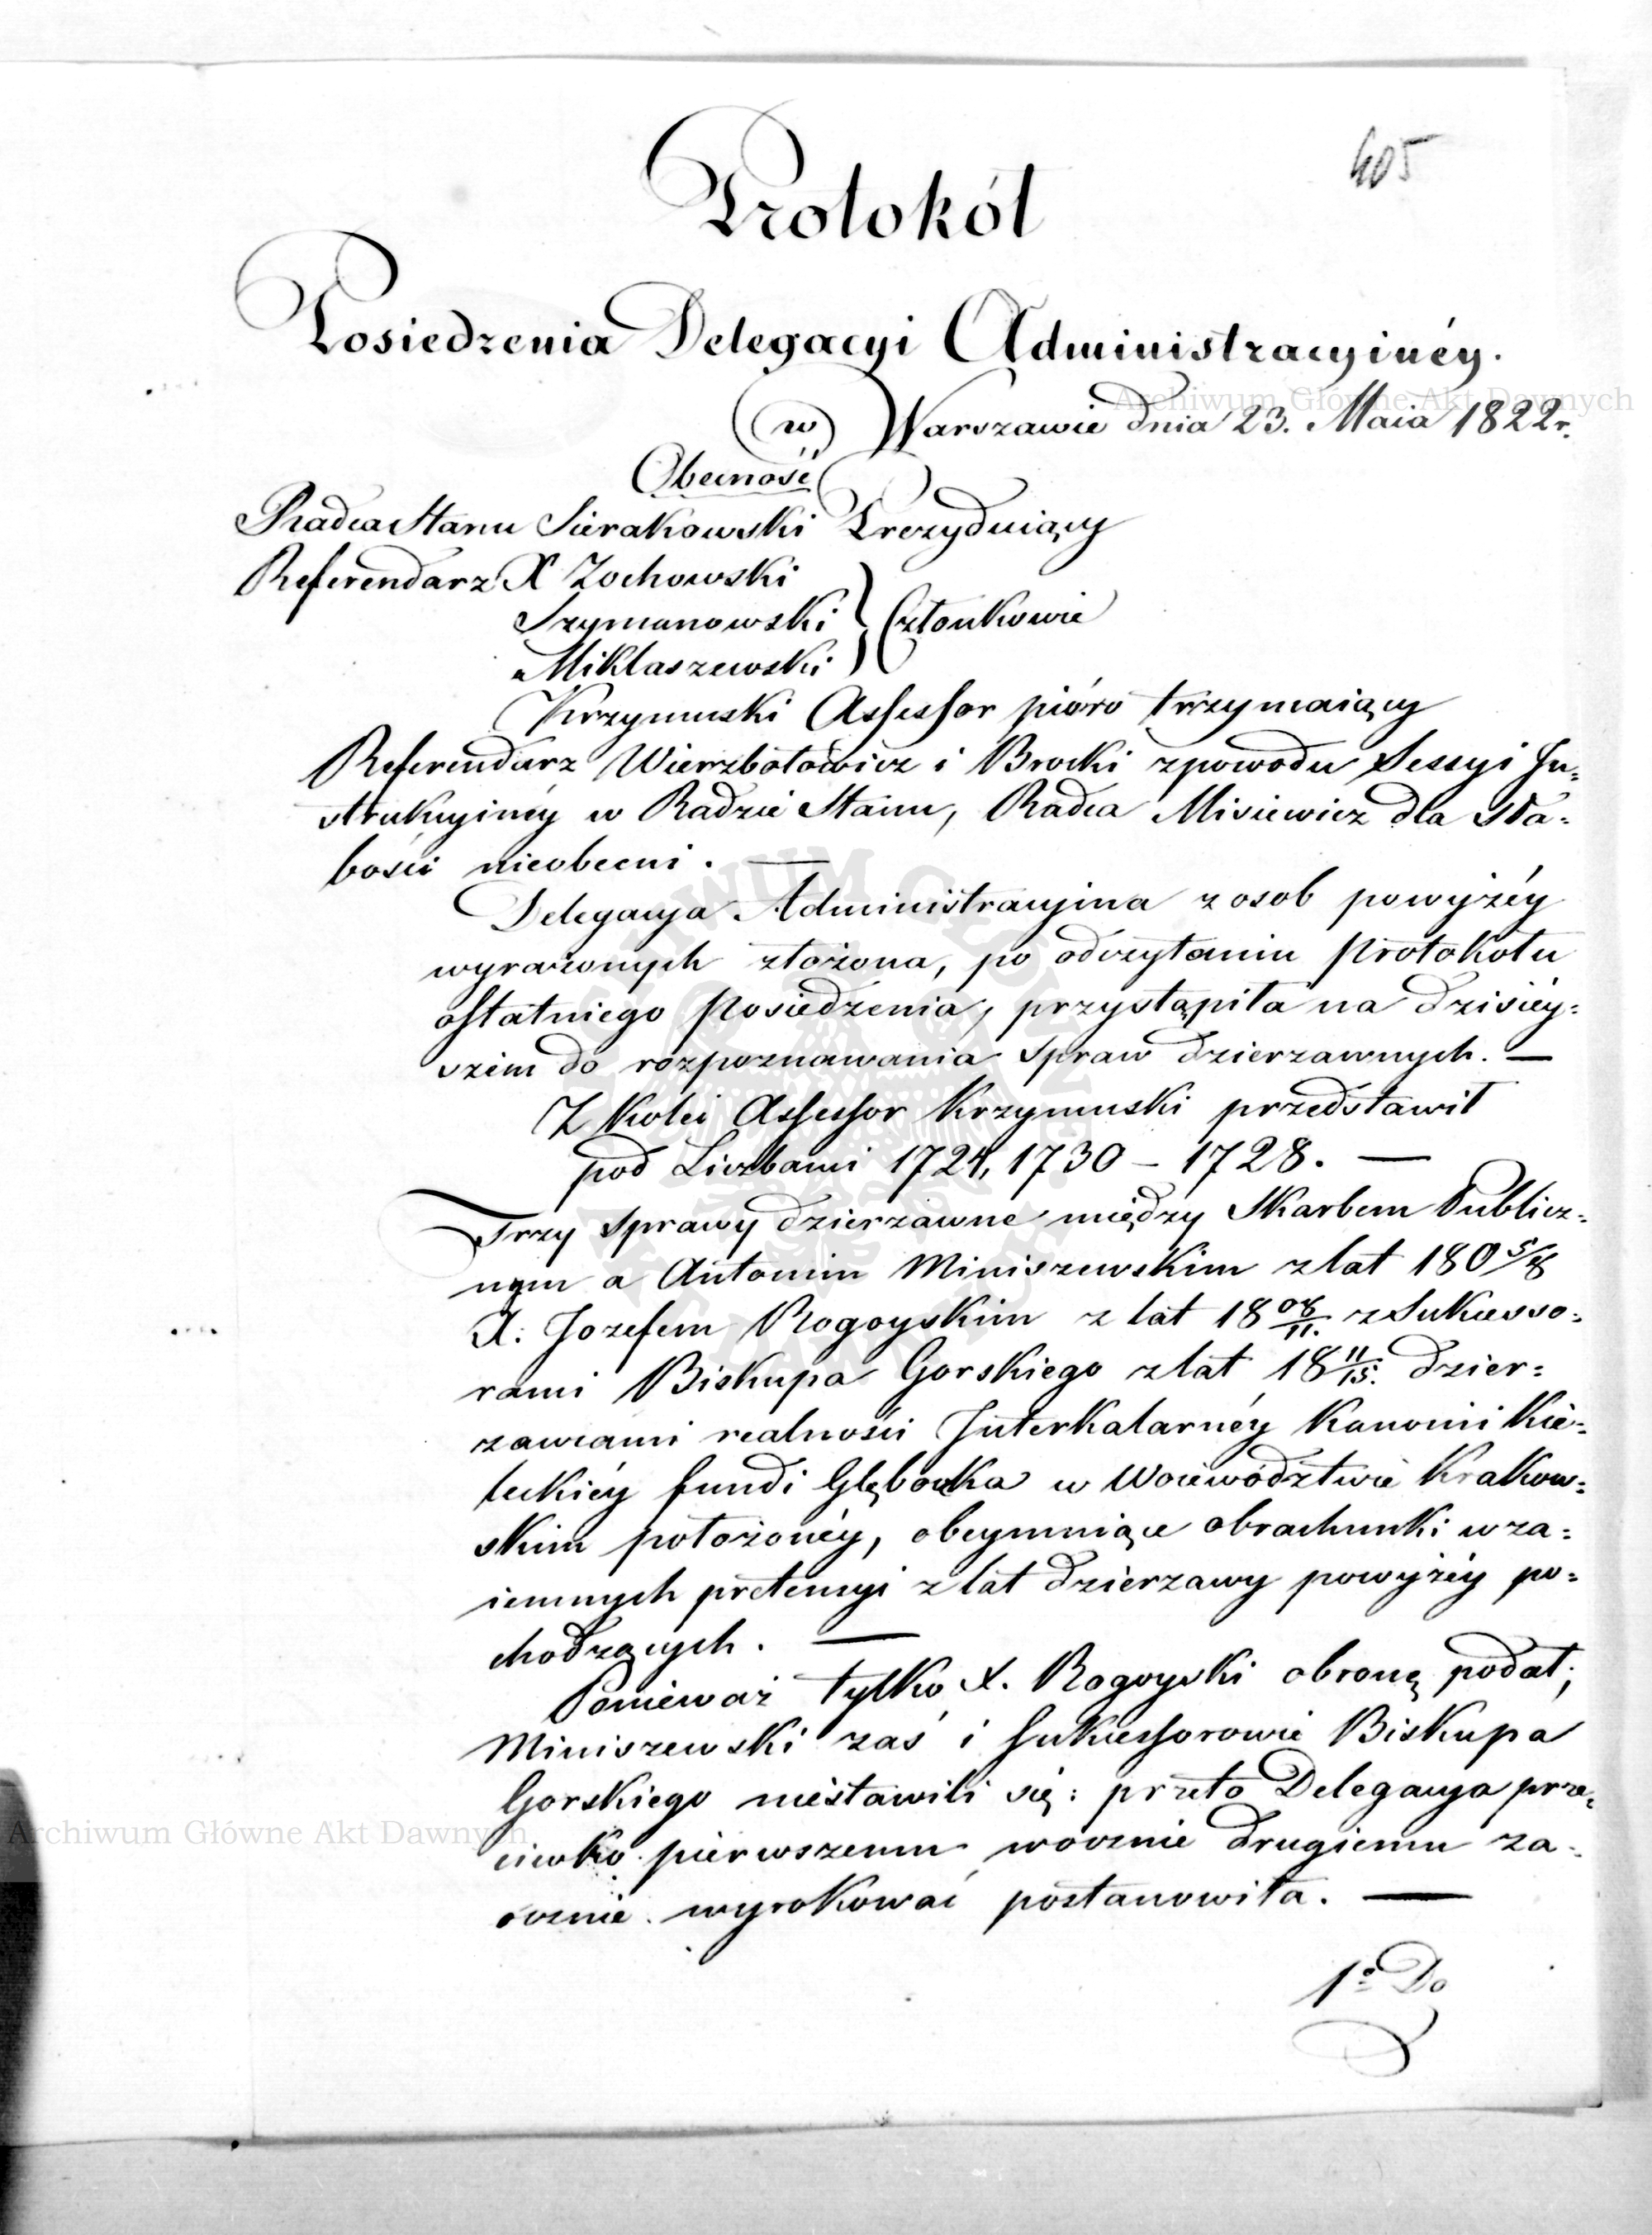 605
Protokół
Posiedzenia Delegacyi Administracyinéy.
w Warszawie dnia 23. Maia 1822 r.
Obecność
Radca Stanu Sierakowski Prezyduiący
Referendarz X Zochowski
Szymanowski } Członkowie
Miklaszewski
Krzymuski Assessor pióro trzymaiący
Referendarz Wierzbołowicz i Brocki z powodu Sessyi In=
strukcyinéy w Radzie Stanu, Radca Misiewicz dla Sła=
bości nieobecni. —
Delegacya Administracyina z osob powyżéy
wyrażonych złożona, po odczytaniu Protokołu
ostatniego Posiedzenia, przystąpiła na dzisiéy=
szem do rozpoznawania Spraw dzierzawnych. —
Z Kolei Assessor Krzymuski przedstawił
pod Liczbami 1724, 1730 – 1728. —
Trzy Sprawy dzierzawne między Skarbem Publicz=
nym a Antonim Miniszewskim z lat 180 5/8
X. Jozefem Rogoyskim z lat 18 08/11. z Sukcesso=
rami Biskupa Gorskiego z lat 18 11/15. dzier=
zawcami realności Interkalarnéy Kanonii Kie=
leckiéy fundi Głęboczka w Woiewództwie Krakow=
skim położonéy, obeymuiące obrachunki wza=
iemnych pretensyi z lat dzierzawy powyżéy po=
chodzących. —
Ponieważ tylko X. Rogoyski obronę podał;
Miniszewski zaś i Sukcessorowie Biskupa
Gorskiego niestawili się: przeto Delegacya prze=
ciwko pierwszemu wocznie drugiemu za=
ocznie wyrokować postanowiła. —
1º Do
Archiwum Główne Akt Dawnych
Archiwum Główne Akt Dawnych